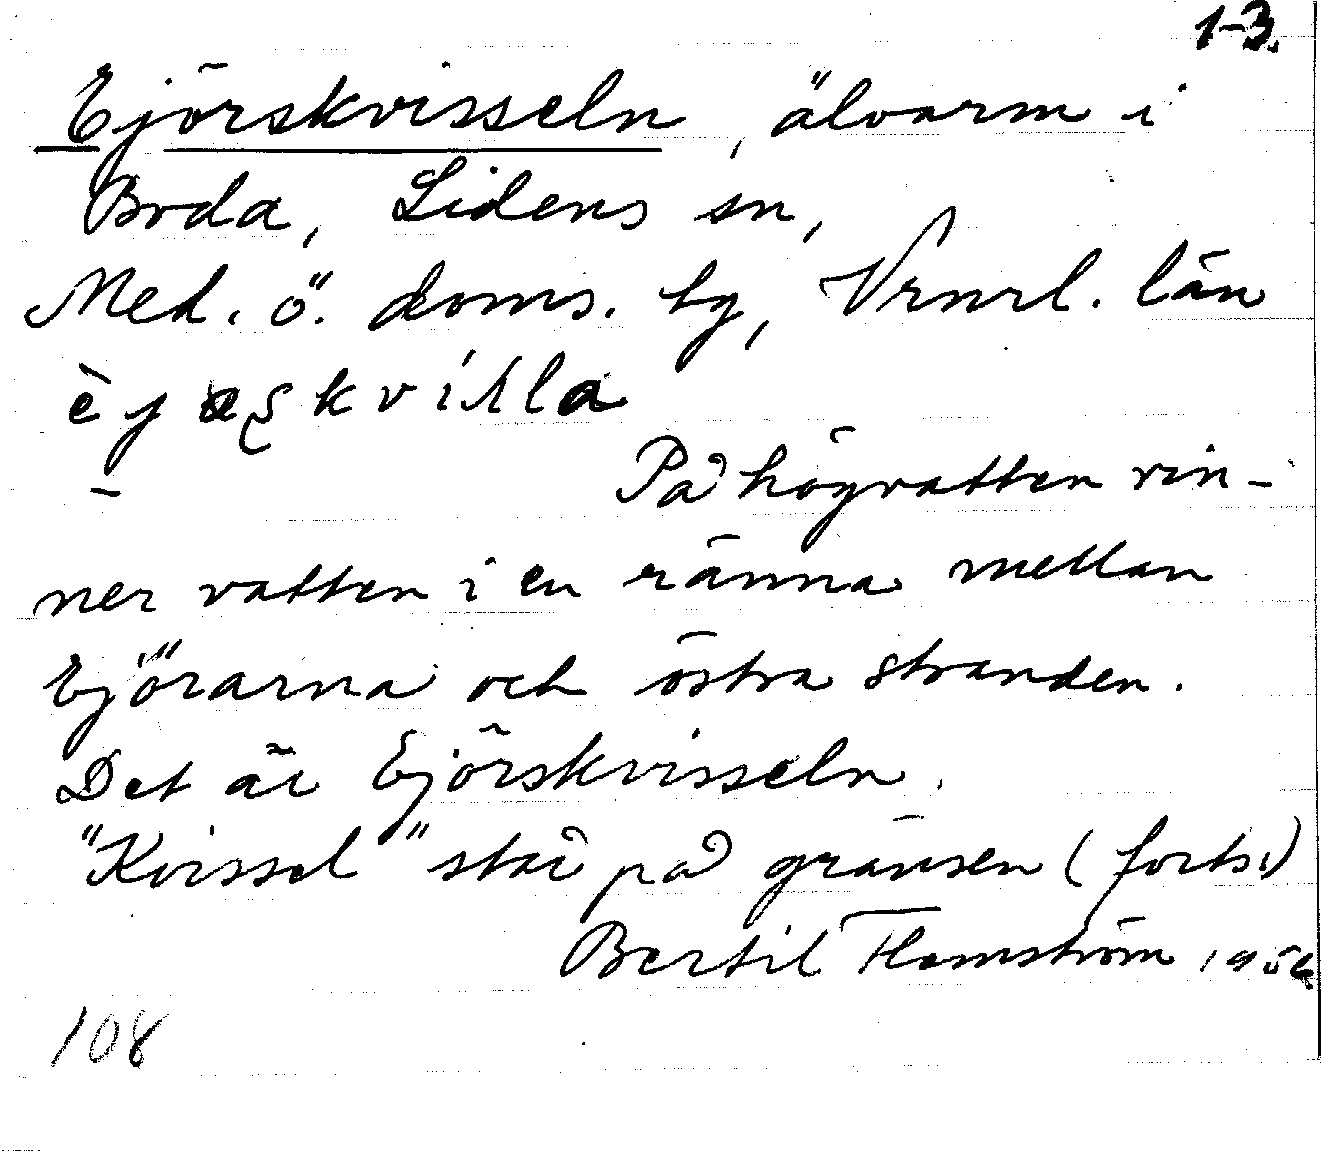 1-3.
Ejörskvisseln, älvarm i
Boda, Lidens sn,
Med. ö. doms. tg, Vrnrl. län
På högvatten rin-
ner vatten i en ränna mellan
Ejörarna och östra stranden.
Det är Ejörskvisseln.
"Kvissel" står på gränsen (forts.)
Bertil Flemström 1956
108